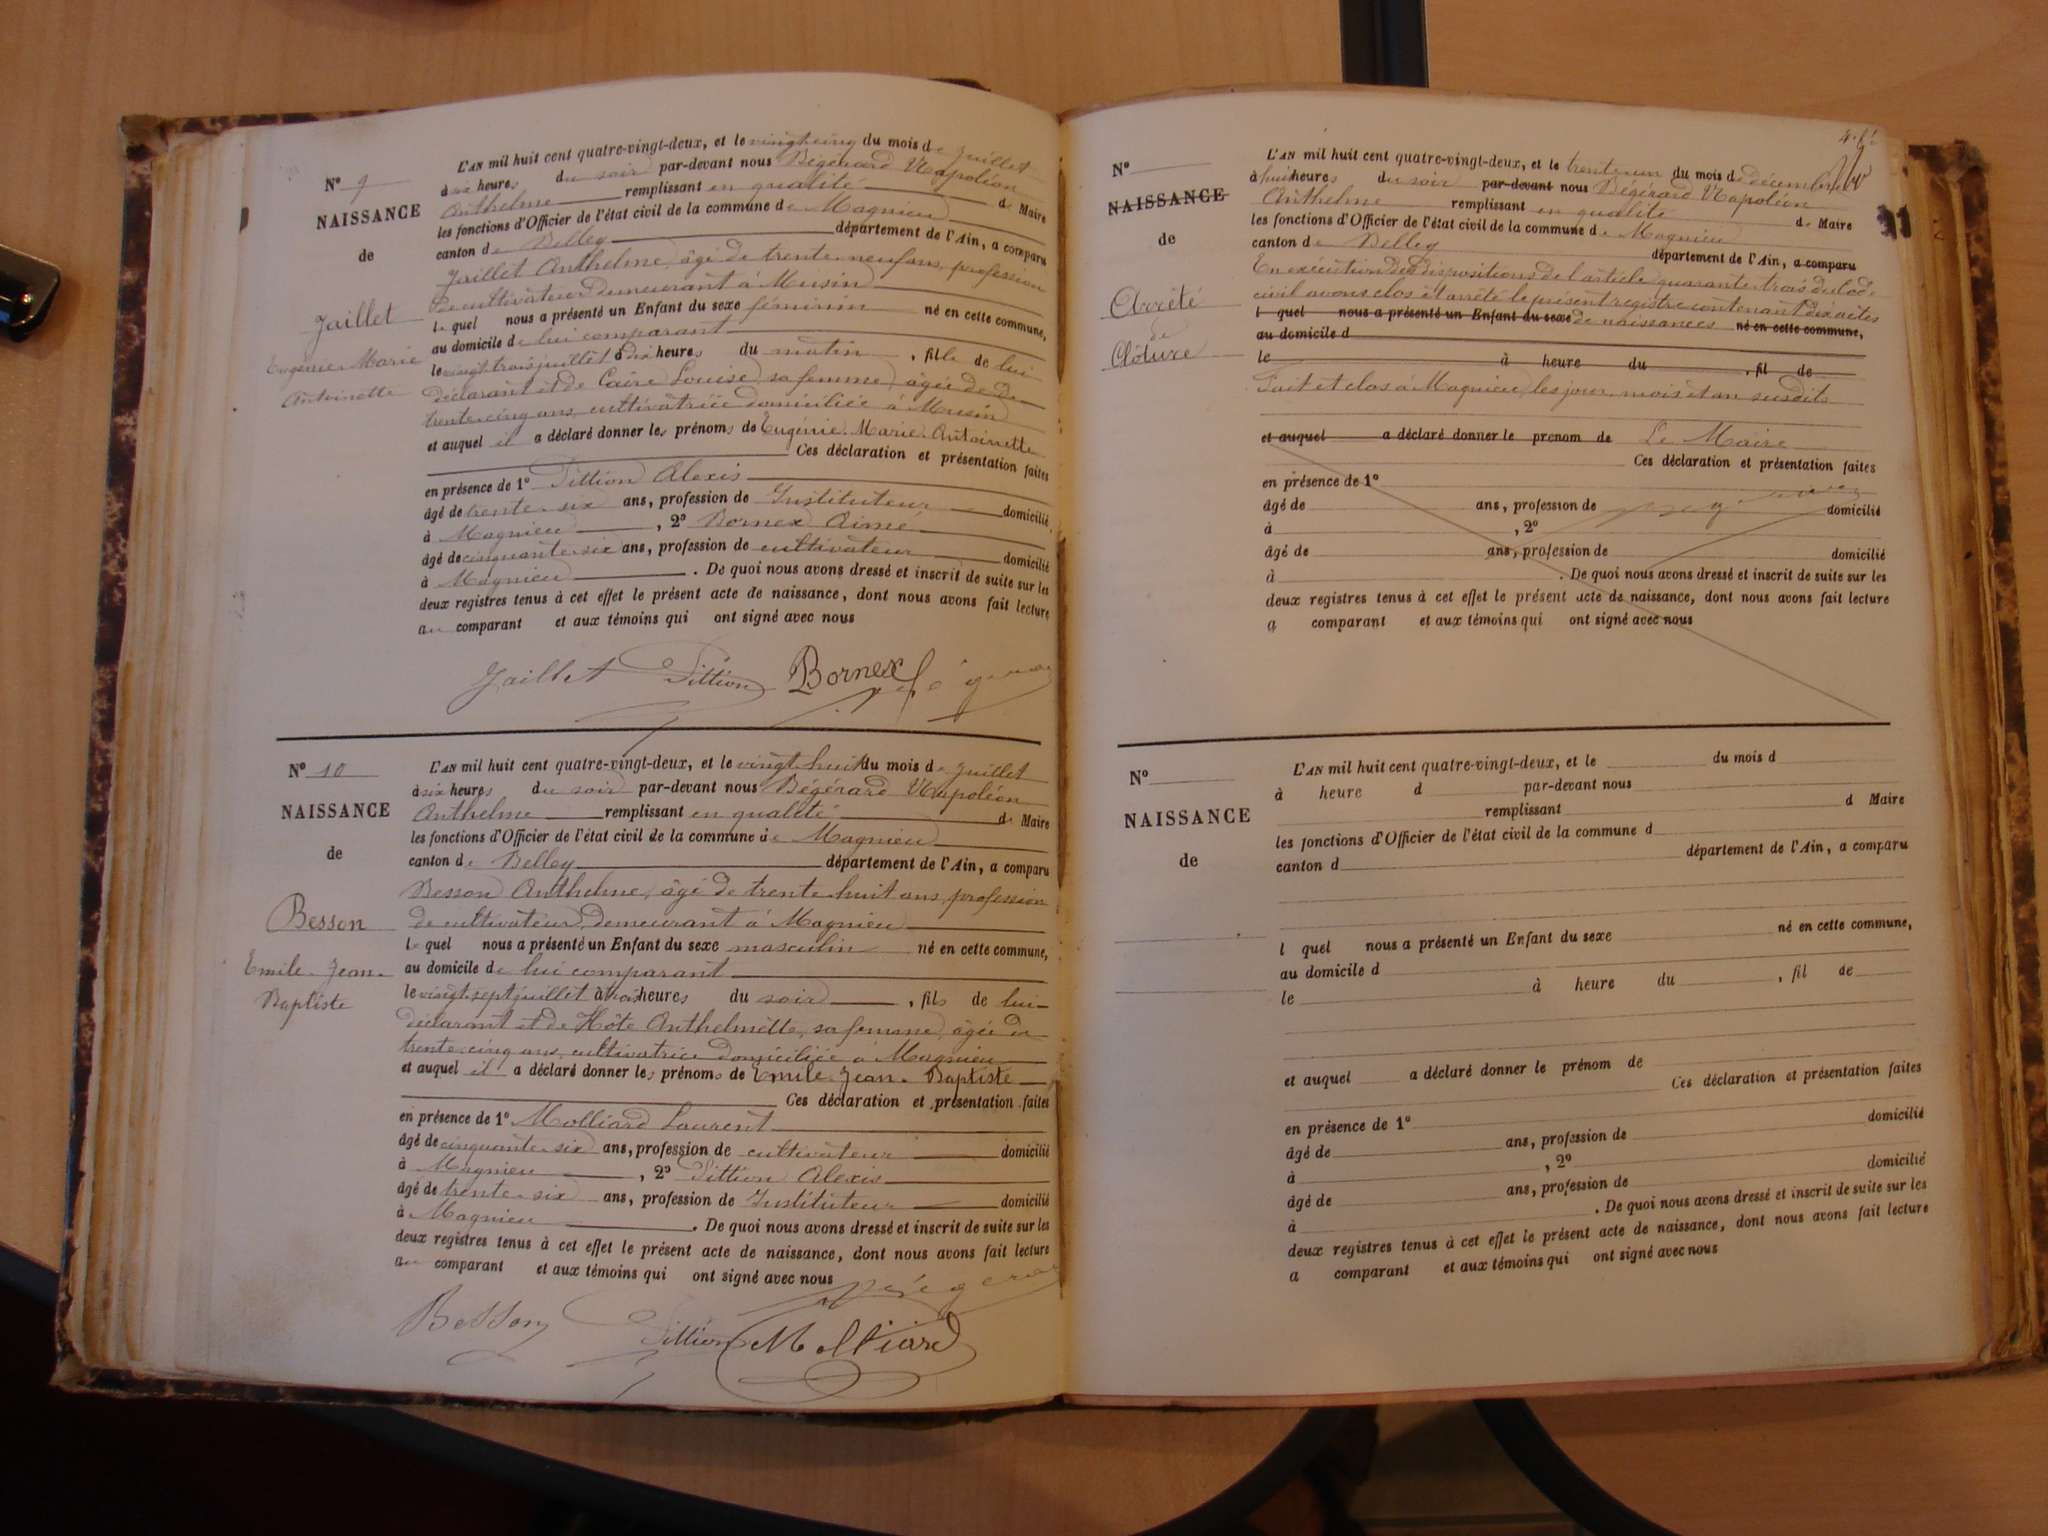 N° 9
NAISSANCE
de
Jaillet
Eugénie Marie
Antoinette
L'AN mil huit cent quatre-vingt-deux, et le vingt cinq du mois de Juillet
à six heures du soir par-devant nous Bégérard Napoléon
Anthelme remplissant en qualité de Maire
les fonctions d'Officier de l'état civil de la commune de Magnieu
canton de Belley département de l'Ain, a comparu
Jaillet Anthelme, âgé de trente-neuf ans, profession
de cultivateur demeurant à Musin
lequel nous a présenté un Enfant du sexe féminin né en cette commune,
au domicile de lui comparant
le vingt trois juillet à heures du matin, fille de lui
déclarant et de Caire Louise, sa femme, âgée de de
trente-cinq ans, cultivatrice domiciliée à Musin
et auquel il a déclaré donner les prénoms de Eugénie Marie Antoinette
Ces déclaration et présentation faites
en présence de 1° Pittion Alexis
âgé de trente-six ans, profession de Instituteur domicilié
à Magnieu, 2° Bornex Aimé
âgé de cinquante-six ans, profession de cultivateur domicilié
à Magnieu. De quoi nous avons dressé et inscrit de suite sur les
deux registres tenus à cet effet le présent acte de naissance, dont nous avons fait lecture
au comparant et aux témoins qui ont signé avec nous
Jaillet Pittion Bornex
N° 10
NAISSANCE
de
Besson
Emile Jean
Baptiste
L'AN mil huit cent quatre-vingt-deux, et le vingt huit du mois de Juillet
à six heures du soir par-devant nous Bégérard Napoléon
Anthelme remplissant en qualité de Maire
les fonctions d'Officier de l'état civil de la commune de Magnieu
canton de Belley département de l'Ain, a comparu
Besson Anthelme, âgé de trente-huit ans, profession
de cultivateur, demeurant à Magnieu
lequel nous a présenté un Enfant du sexe masculin né en cette commune,
au domicile de lui comparant
le vingt-sept juillet à trois heures du soir, fils de lui
déclarant et de Hôte Anthelmette, sa femme, âgée de
trente-cinq ans, cultivatrice domiciliée à Magnieu
et auquel il a déclaré donner les prénoms de Emile Jean Baptiste
Ces déclaration et présentation faites
en présence de 1° Molliard Laurent
âgé de cinquante-six ans, profession de cultivateur domicilié
à Magnieu, 2° Pittion Alexis
âgé de trente-six ans, profession de Instituteur domicilié
à Magnieu. De quoi nous avons dressé et inscrit de suite sur les
deux registres tenus à cet effet le présent acte de naissance, dont nous avons fait lecture
au comparant et aux témoins qui ont signé avec nous
Besson Pittion Molliard
N°
NAISSANCE
de
Arrêté
de
Clôture
L'AN mil huit cent quatre-vingt-deux, et le trente-un du mois de décembre
à huit heures du soir par-devant nous Bégérard Napoléon
Anthelme remplissant en qualité de Maire
les fonctions d'Officier de l'état civil de la commune de Magnieu
canton de Belley département de l'Ain, a comparu
En exécution des dispositions de l'article quarante-trois du Code
civil avons clos et arrêté le présent registre contenant dix actes
l quel nous a présenté un Enfant du sexe de naissances né en cette commune,
au domicile d
le à heure du, fil de
Fait et clos à Magnieu, les jour, mois et an susdits
et auquel a déclaré donner le prénom de Le Maire
Ces déclaration et présentation faites
en présence de 1°
âgé de ans, profession de domicilié
à, 2°
âgé de ans, profession de domicilié
à. De quoi nous avons dressé et inscrit de suite sur les
deux registres tenus à cet effet le présent acte de naissance, dont nous avons fait lecture
a comparant et aux témoins qui ont signé avec nous
N°
NAISSANCE
de
L'AN mil huit cent quatre-vingt-deux, et le du mois d
à heure d par-devant nous
remplissant d Maire
les fonctions d'Officier de l'état civil de la commune d
canton d département de l'Ain, a comparu
l quel nous a présenté un Enfant du sexe né en cette commune,
au domicile d
le à heure du, fil de
et auquel a déclaré donner le prénom de
Ces déclaration et présentation faites
en présence de 1°
âgé de ans, profession de domicilié
à, 2°
âgé de ans, profession de domicilié
à. De quoi nous avons dressé et inscrit de suite sur les
deux registres tenus à cet effet le présent acte de naissance, dont nous avons fait lecture
a comparant et aux témoins qui ont signé avec nous